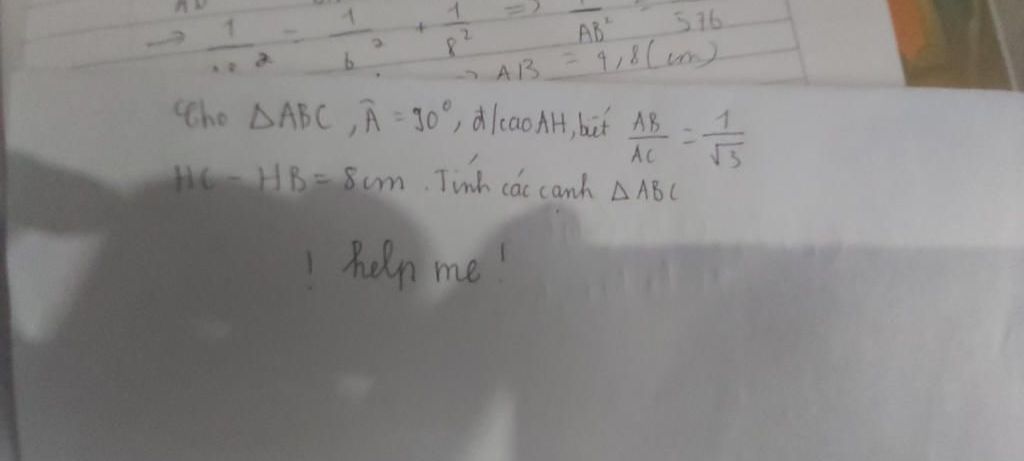 → 1/  ² = 1/6² + 1/8² ⇒ 1/AB² = 576
→ AB = 4,8 (cm)
Cho ΔABC, Â = 90°, đ/cao AH, biết AB/AC = 1/√3
HC - HB = 8cm. Tính các cạnh ΔABC
! help me !